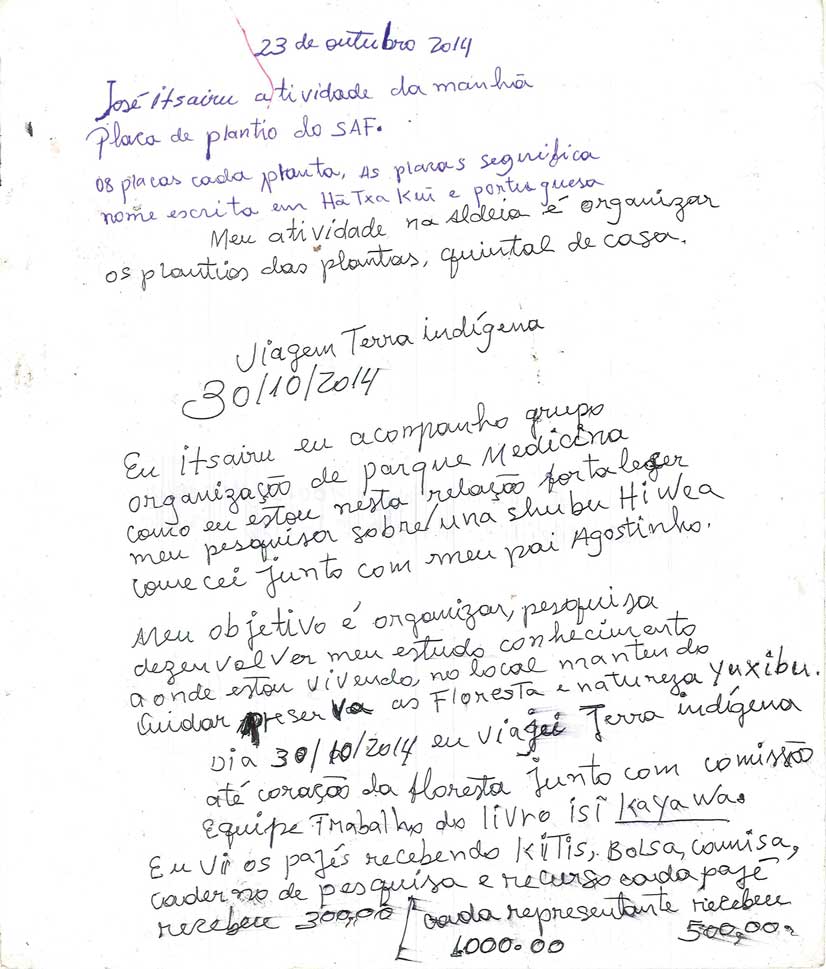 23 de outubro 2014
José itsairu atividade da manhã
Placa de plantio do SAF.
08 placas cada planta, As placas seguifica
nome escrita em Hãtxa Kuĩ e portuguesa
Meu atividade na aldeia é organizar
os plantios das plantas, quintal de casa.
Viagem Terra indígena
30/10/2014
Eu itsairu eu acompanho grupo
organização de parque Medicina
como eu estou nesta relação fortaleger
meu pesquisa sobre/una shubu Hiwea
comecei junto com meu pai Agostinho.
Meu objetivo é organizar, pesquisa
dezenvolver meu estudo conhecimento
aonde estou vivendo no local mantendo
Cuidar preserva as Floresta e natureza Yuxibu.
Dia 30/10/2014 eu viajei Terra indígena
até coração da floresta junto com comissão
Equipe Trabalho do livro isĩ kayawa.
Eu vi os pajés recebendo kitis, Bolsa, camisa,
caderno de pesquisa e recurso cada pajé
recebeu 300,00 [cada representante recebeu
1000.00 500,00.